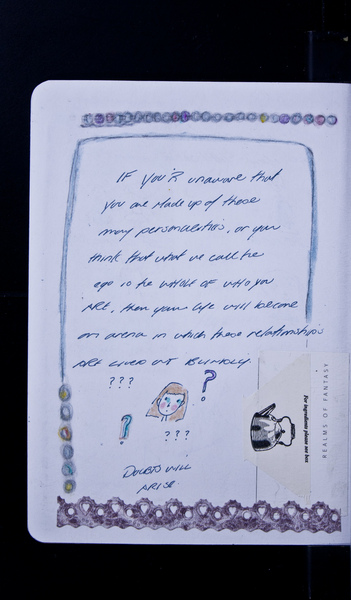 IF YOU'R unaware that
you are made up of these
many personalities, or you
think that what we call the
ego is the WHOLE OF WHO YOU
ARE, then your life will become
an arena in which these relationships
ARE LIVED OUT BLINDLY
? ? ?
?
?
? ? ?
DOUBTS WILL
ARISE
For ingredients please see box
REALMS OF FANTASY